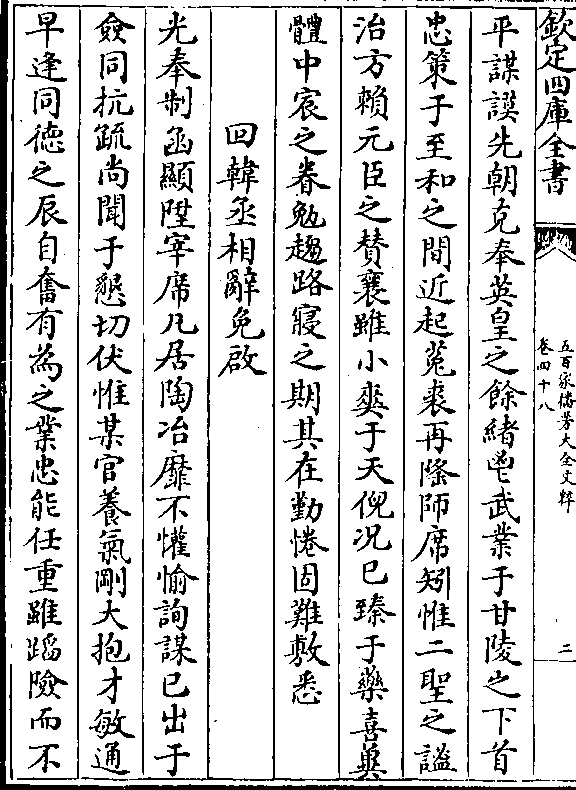 欽定四庫全書
五百家播芳大全文粹
卷四十八
二
平謀謨先朝克奉英皇之餘緒鬯武業于甘陵之下首
忠策于至和之間近起菟裘再隆師席矧惟二聖之謐
治方賴元臣之賛襄雖小爽于天倪况已臻于藥喜奠
體中宸之眷勉趨路寢之期其在勤惓固難敷悉
回韓丞相辭免啟
光奉制函顯陞宰席凡居陶冶靡不懽愉詢謀已出于
僉同抗疏尚聞于懇切伏惟某官養氣剛大抱才敏通
早逢同德之辰自奮有為之業忠能任重雖蹈險而不